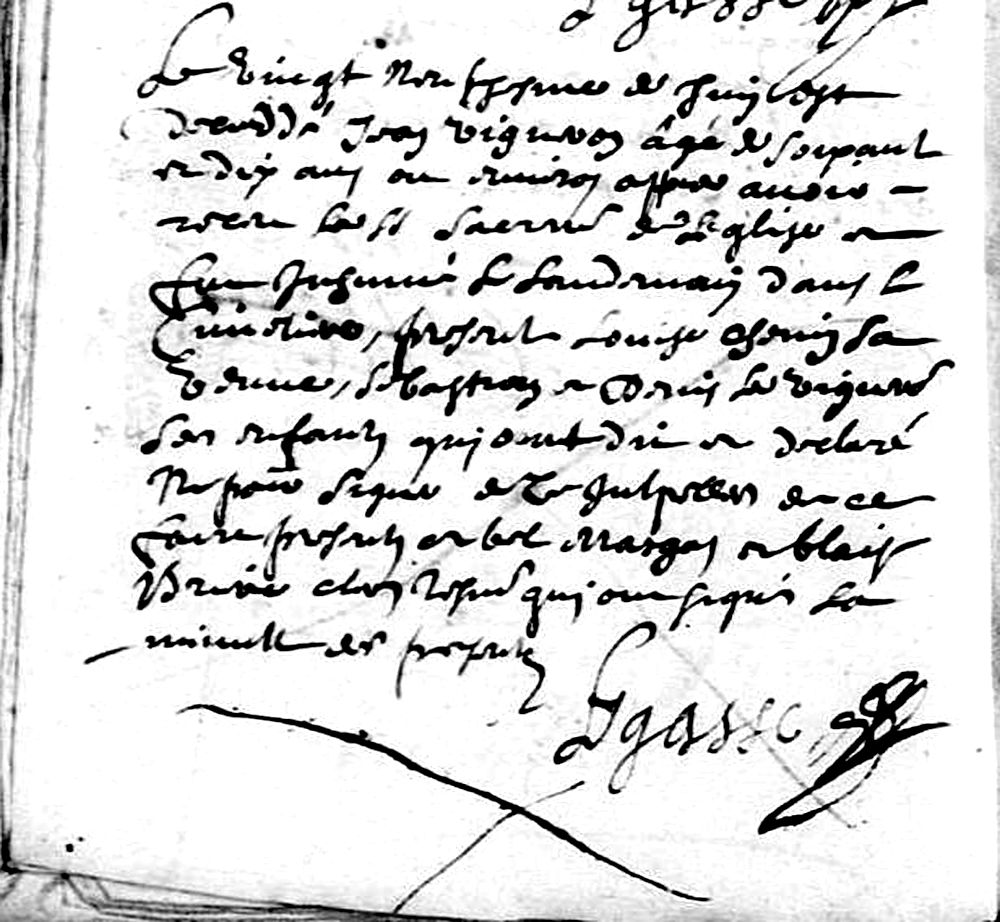 Le vingt neufhesme de Juin est
decedde Jean vigneron âgé de soixante
et dix ans ou environ apres avoir
receu les Sts Sacremt de l'eglise et
fut Inhumé le Lendemain dans le
Cimetiere, presents Louise chenin sa
veuve, Sebastien et Denis les vigneron
ses enfants qui ont dit et declaré
Ne savoir signer de ce Interpelles de ce
faire presents et blaise
tesmoins qui ont signé La
minutte des presents